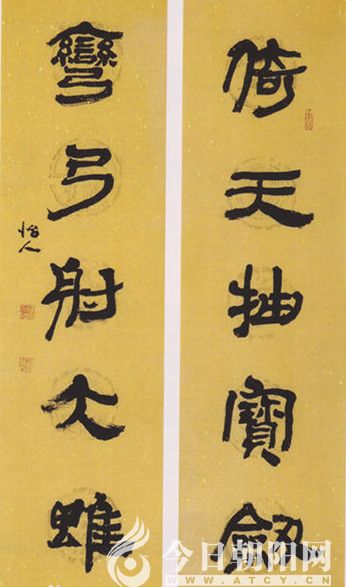 倚天抽寶劍
彎弓射大雖
怡人
今日朝阳网
WWW.ATCY.CN